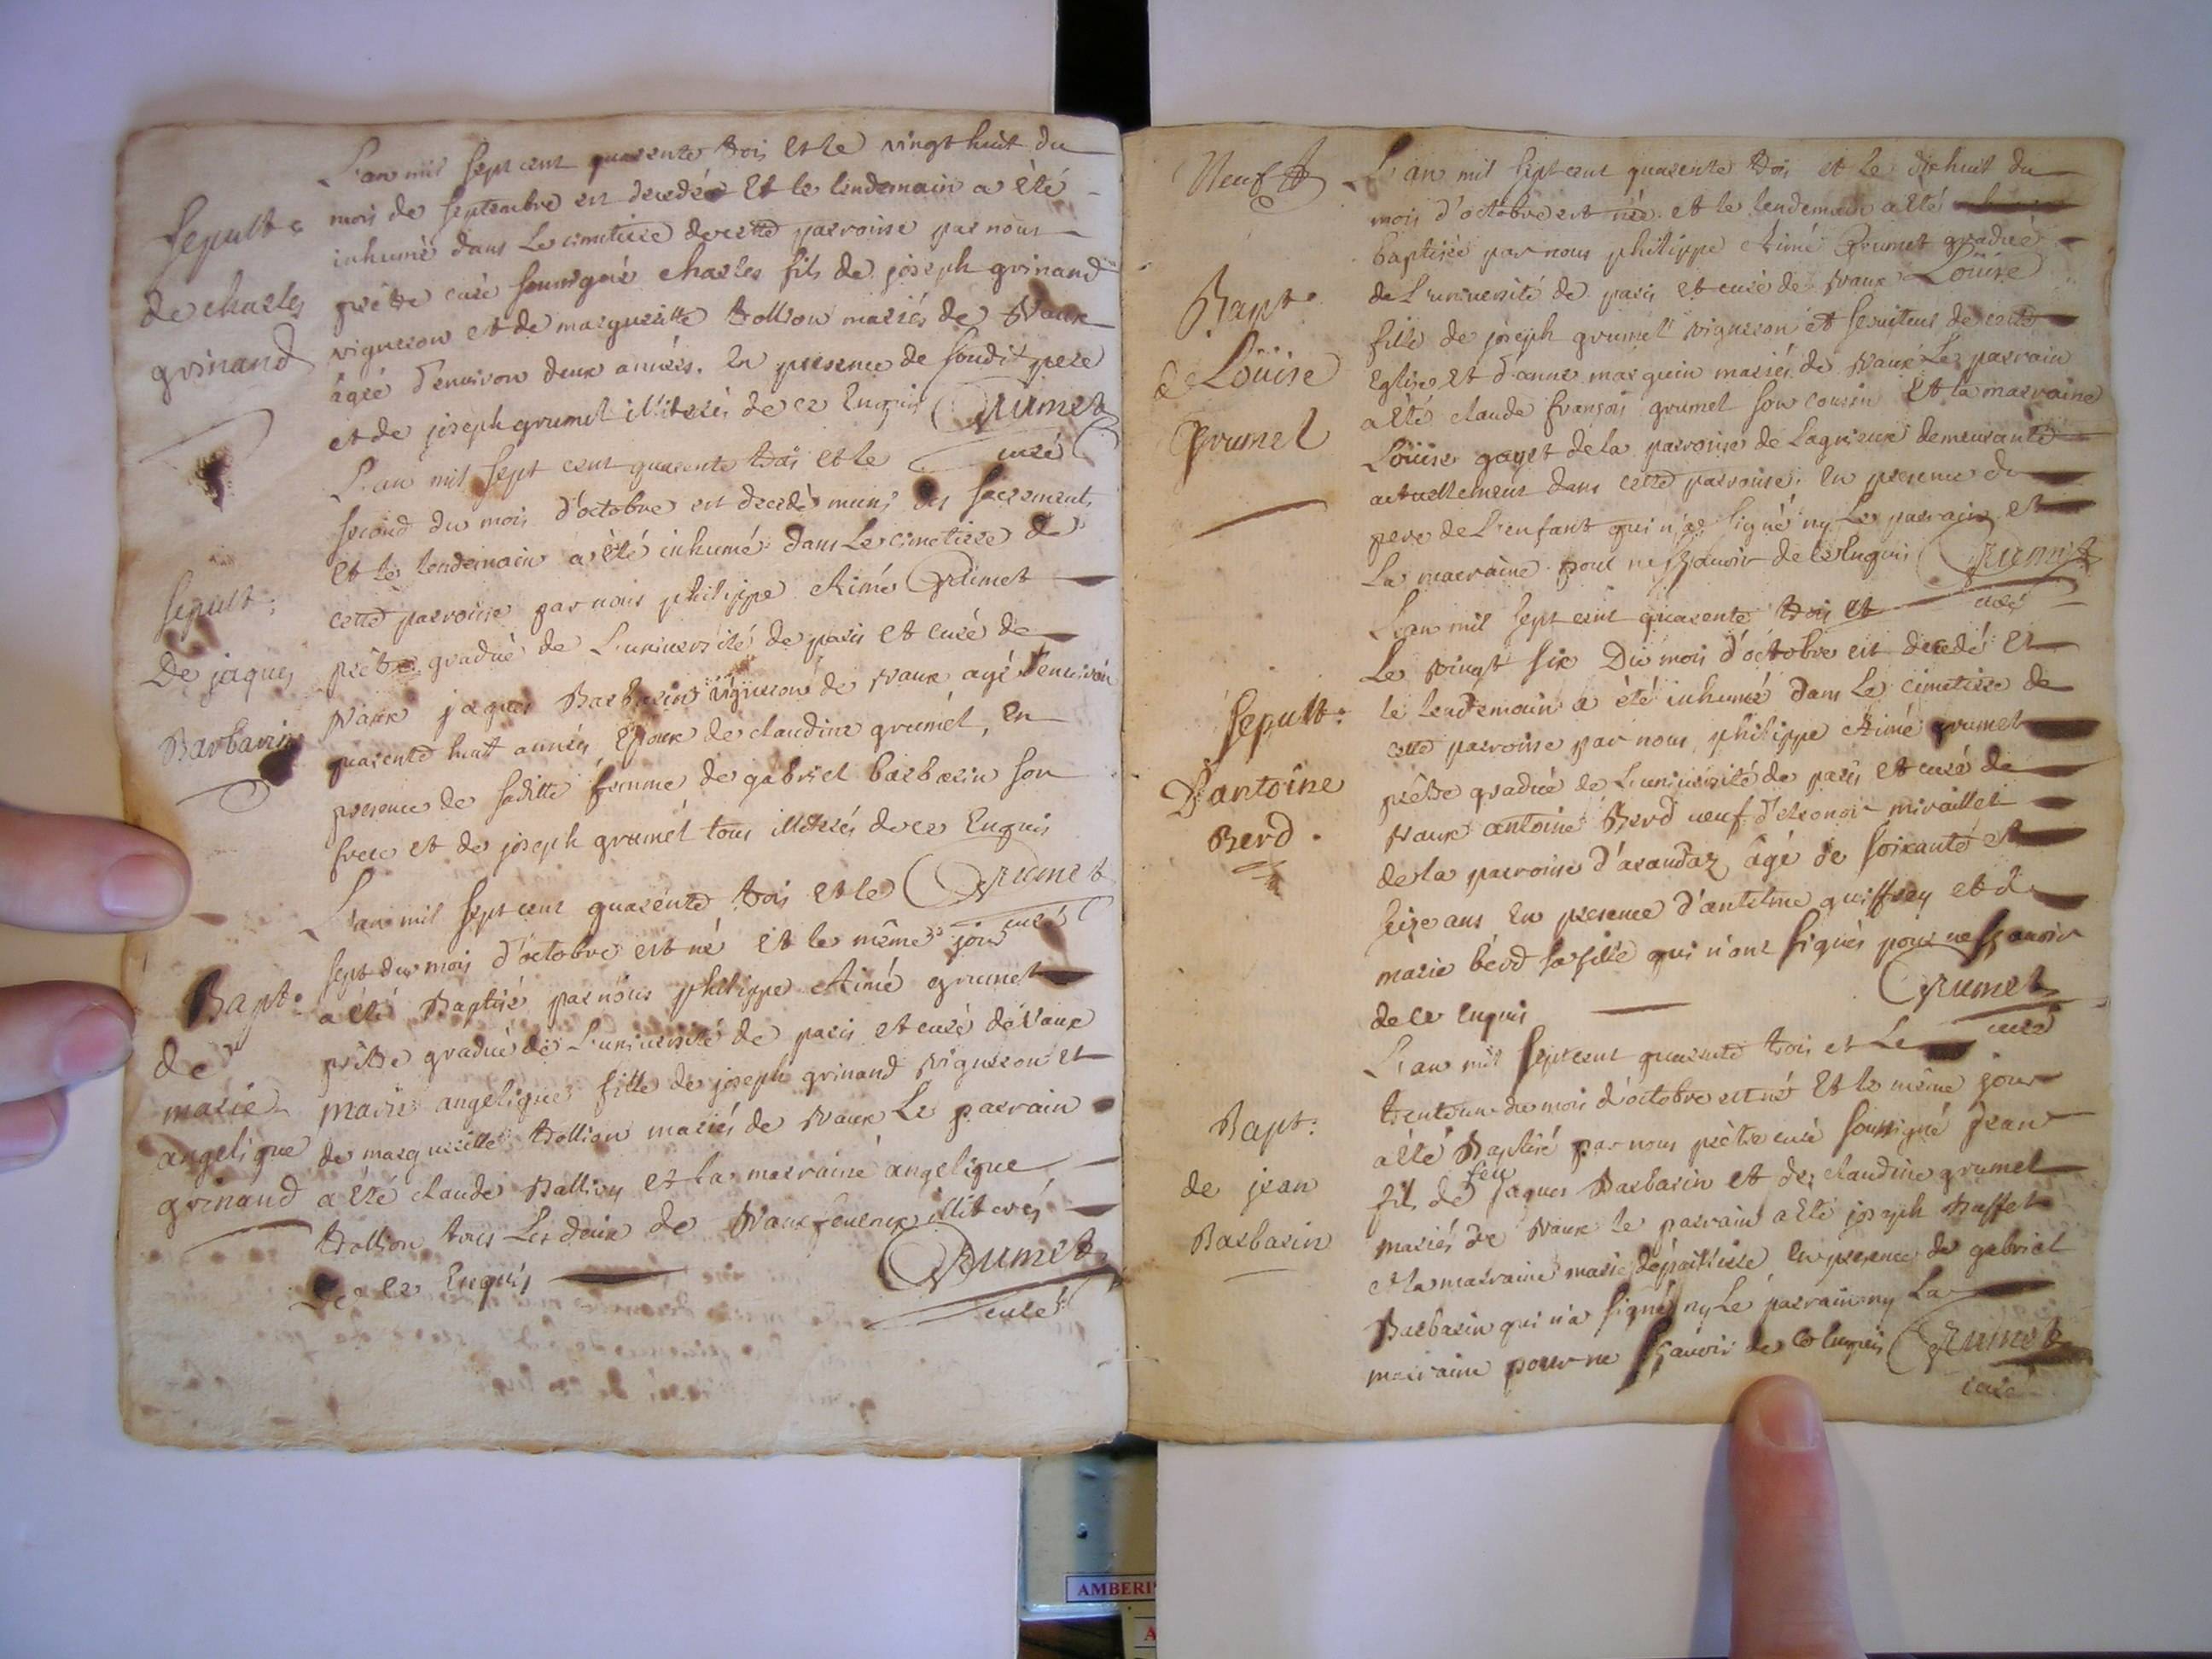 Sepult:
de charles
grinand
L'an mil sept cent quarente trois et le vingt huit du
mois de septembre est decedé et le lendemain a été
inhumé dans le cimetiere de cette parroisse par nous
prêtre curé soussigné charles fils de joseph grinand
vigneron et de margueritte trollion mariés de Vaux
âgé d'environ deux années. En presence de sondit pere
et de joseph grumet illiterés de ce Enquis Grumet
curé
Sepult:
De jaques
Barbarin
L'an mil sept cent quarente trois et le
second du mois d'octobre est decedé muni des sacrements
et le lendemain a été inhumé dans le cimetiere de
cette parroisse par nous philippe Aimé Grumet
prêtre gradué de L'université de paris et curé de
Vaux jaques Barbarin vigneron de Vaux agé d'environ
quarente huit années Epoux de claudine grumet, En
presence de saditte femme de gabriel barbarin son
frere et de joseph grumet tous illiterés de ce Enquis
Grumet
curé
Bapt:
de
marie
angelique
grinand
L'an mil sept cent quarente trois et le
sept du mois d'octobre est né et le même jour
a été Baptisé par nous philippe Aimé grumet
prêtre gradué de L'université de paris et curé de Vaux
marie angelique fille de joseph grinand vigneron et
de margueritte trollion mariés de Vaux Le parrain
a été claude et la marraine angelique
trollion tous Les deux de Vaux illiterés
De ce Enquis
Grumet
curé
Neuf
Bapt:
de Loüise
Grumet
L'an mil sept cent quarente trois et le dixhuit du
mois d'octobre est née et le lendemain a été
baptisée par nous philippe Aimé Grumet gradué
de L'université de paris et curé de Vaux Loüise
fille de joseph grumet vigneron et serviteur de cette
Eglise et d'anne marguin mariés de Vaux Le parrain
a été claude françois grumet son cousin et la marraine
Loüise gayet de la parroisse de Lagnieux demeurante
actuellement dans cette parroisse. En presence du
pere de L'enfant qui n'as signé ny Le parrain et
La marraine pour ne sçauoir de ce Enquis Grumet
curé
Sepult:
D'antoine
Berd.
L'an mil sept cent quarente trois et
Le vingt six Du mois d'octobre est decedé et
le lendemain a été inhumé dans Le cimetiere de
cette parroisse par nous philippe Aimé grumet
prêtre gradué de L'université de paris et curé de
Vaux antoine Berd veuf d'eleonor mivaillet
de la parroisse d'arandaz âgé de soixante et
seize ans En presence d'antelme guiffrey et de
marie berd sa fille qui n'ont signés pour ne sçauoir
de ce enquis
Grumet
curé
Bapt:
de jean
Barbarin
L'an mil sept cent quarente trois et Le
trente un du mois d'octobre est né et le même jour
a été Baptisé par nous prêtre curé soussigné Jean
fils de feu jaques Barbarin et de claudine grumet
mariés de Vaux le parrain a été joseph
et la marraine marie En presence de gabriel
Barbarin qui n'a signé ny Le parrain ny La
marraine pour ne sçauoir de ce Enquis Grumet
curé
AMBERI